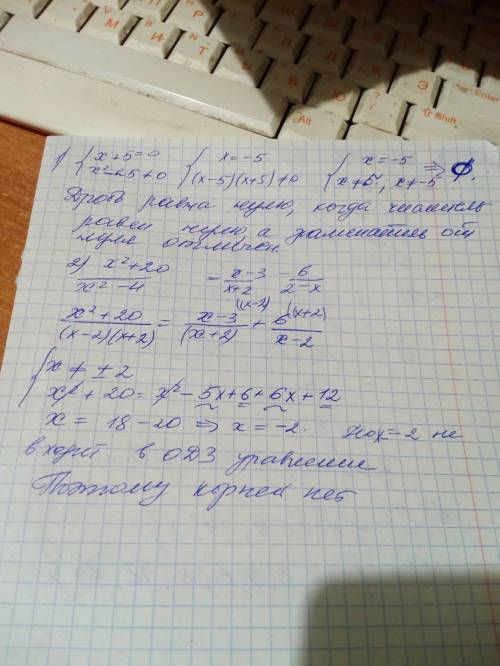 1) { x+5=0 { x=-5 { x=-5 ⇒ Ø.
x²-25≠0 (x-5)(x+5)≠0 x≠5, x≠-5
Дробь равна нулю, когда числитель
равен нулю, а знаменатель от
нуля отличен.
2) x²+20 / x²-4 = x-3 / x+2 - 6 / 2-x
x²+20 / (x-2)(x+2) = x-3 (x-2) / (x+2) + 6 (x+2) / x-2
{ x ≠ ± 2
x² + 20 = x² - 5x + 6 + 6x + 12
x = 18 - 20 ⇒ x = -2. Но x=-2 не
входит в ОДЗ уравнения
Поэтому корней нет
Alt
Enter
⇧ Shift